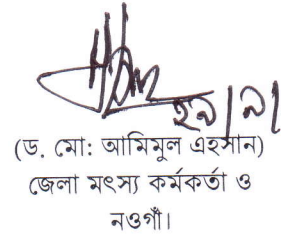 (ড. মো: আমিমুল এহসান)
জেলা মৎস্য কর্মকর্তা ও
নওগাঁ।